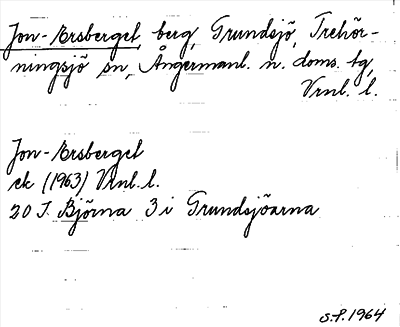 Jon-Ersberget, berg, Grundsjö, Trehör-
ningsjö sn, Ångermanl. n. doms. tg,
Vrnl. l.
Jon-Ersberget
ek (1963) Vrnl. l.
20 J. Björna 3 i Grundsjöarna
S.P. 1964